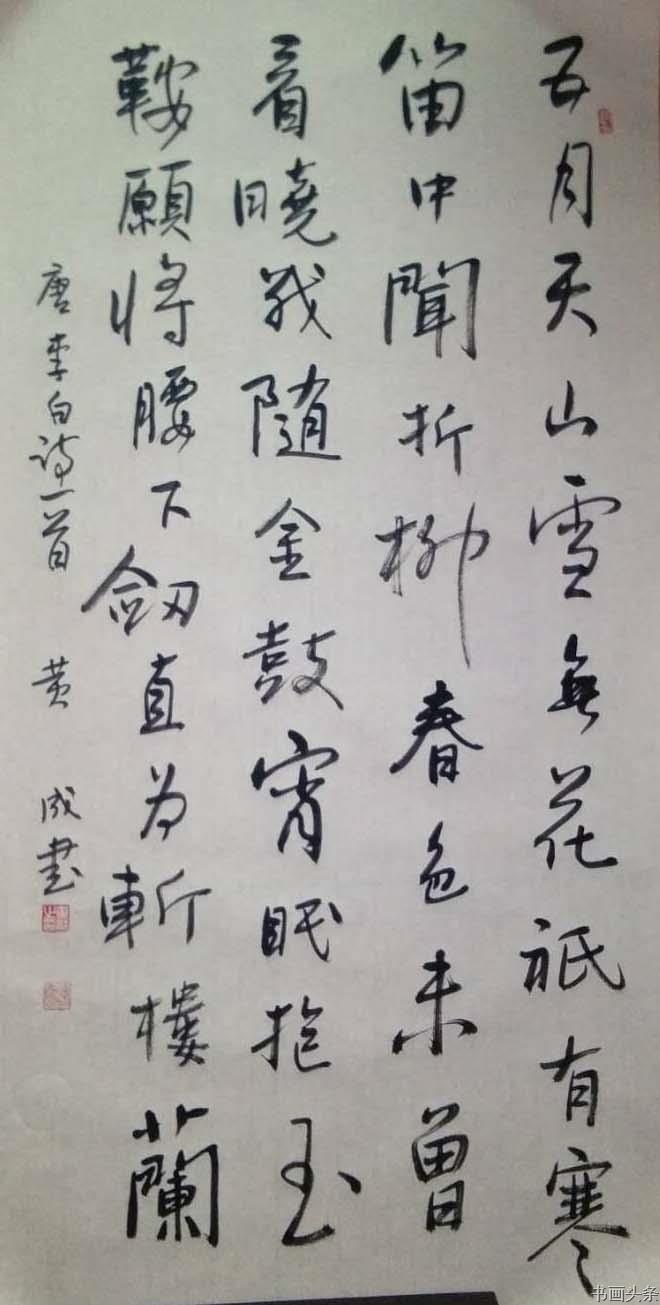 五月天山雪無花祇有寒
笛中聞折柳春色未曾
看曉戰随金鼓宵眠抱玉
鞍願將腰下劒直为斬樓蘭
唐李白诗一首 黄成書
书画头条